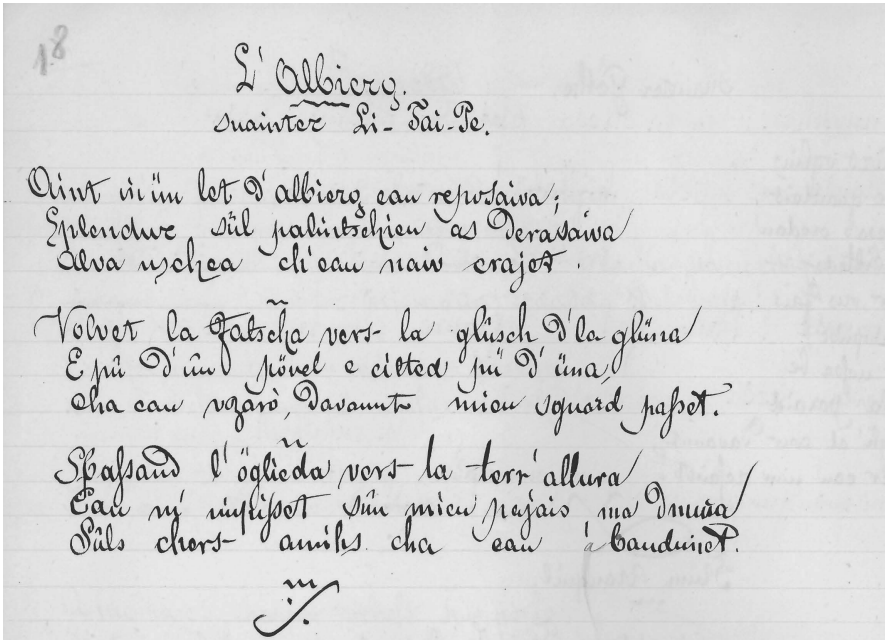 18
L' Albierg.
suainter Li-Tai-Pe.
Aint in ün let d'albierg eau reposaiva;
Splendur sül palintschieu as derasaiva
Alva uschea ch'eau naiv crajet.
Volvet la fatscha vers la glüsch d'la glüna
E pü d'ün pövel e citted pü d'üna,
Cha eau vzarò, davaunt mieu sguard passet.
Sbassand l'öglieda vers la terr' allura
Eau m' impisset sün mieu pajais ma
Süls chers amihs cha eau abandunet.